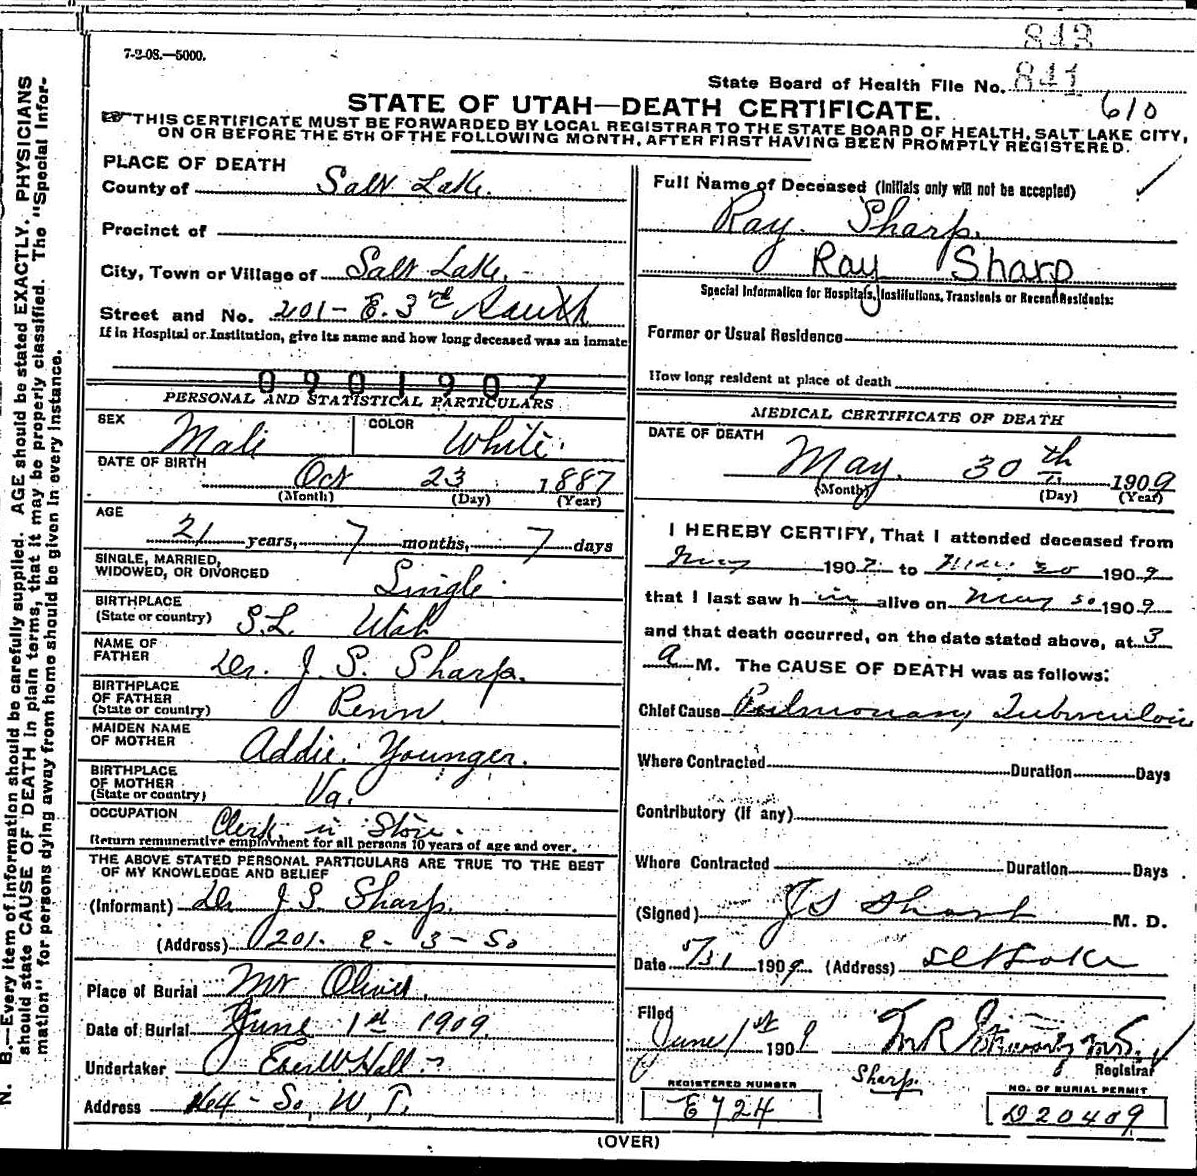 843
7-2-08.—5000.
State Board of Health File No. 841
STATE OF UTAH—DEATH CERTIFICATE.
610
THIS CERTIFICATE MUST BE FORWARDED BY LOCAL REGISTRAR TO THE STATE BOARD OF HEALTH, SALT LAKE CITY,
ON OR BEFORE THE 5TH OF THE FOLLOWING MONTH, AFTER FIRST HAVING BEEN PROMPTLY REGISTERED.
PLACE OF DEATH
County of Salt Lake.
Precinct of
City, Town or Village of Salt Lake.
Street and No. 201 - E. 3rd South
If in Hospital or Institution, give its name and how long deceased was an inmate
0901907
PERSONAL AND STATISTICAL PARTICULARS
SEX Male COLOR White.
DATE OF BIRTH Oct 23 1887
(Month) (Day) (Year)
AGE
21 years, 7 months, 7 days
SINGLE, MARRIED,
WIDOWED, OR DIVORCED Single
BIRTHPLACE
(State or country) S.L. Utah
NAME OF
FATHER Dr. J. S. Sharp.
BIRTHPLACE
OF FATHER
(State or country) Penn
MAIDEN NAME
OF MOTHER Addie Younger.
BIRTHPLACE
OF MOTHER
(State or country) Va.
OCCUPATION Clerk in Store.
Return remunerative employment for all persons 10 years of age and over.
THE ABOVE STATED PERSONAL PARTICULARS ARE TRUE TO THE BEST
OF MY KNOWLEDGE AND BELIEF
(Informant) Dr J. S. Sharp.
(Address) 201. E - 3 - So
Place of Burial Mt Olivet.
Date of Burial June 1st 1909
Undertaker Eber W Hall
Address So, W, T.
Full Name of Deceased (Initials only will not be accepted)
Ray Sharp.
Ray Sharp
Special Information for Hospitals, Institutions, Transients or Recent Residents:
Former or Usual Residence
How long resident at place of death
MEDICAL CERTIFICATE OF DEATH
DATE OF DEATH
May 30th 1909
(Month) (Day) (Year)
I HEREBY CERTIFY, That I attended deceased from
May 1907 to May 30 1909
that I last saw him alive on May 30 1909
and that death occurred, on the date stated above, at 3
a M. The CAUSE OF DEATH was as follows:
Chief Cause Pulmonary Tuberculosis
Where Contracted Duration Days
Contributory (if any)
Where Contracted Duration Days
(Signed) J S Sharp M. D.
Date 5/31 1909 (Address) Salt Lake
Filed
June 1st 1909
Registrar
Sharp.
REGISTERED NUMBER
E 724
NO. OF BURIAL PERMIT
D20409
(OVER)
N. B.—Every item of information should be carefully supplied. AGE should be stated EXACTLY. PHYSICIANS
should state CAUSE OF DEATH in plain terms, that it may be properly classified. The "Special Infor-
mation" for persons dying away from home should be given in every instance.